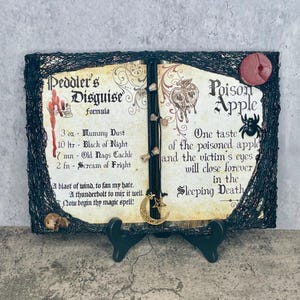 Peddler's
Disguise
Formula
3 oz - Mummy Dust
10 ltr - Black of Night
7 min - Old Hags Cackle
2 lm - Scream of Fright
A blast of wind, to fan my hate.
A thunderbolt to mix it well.
Now begin thy magic spell!
Poison
Apple
One taste
of the poisoned apple
and the victim's eyes
will close forever
in the
Sleeping Death